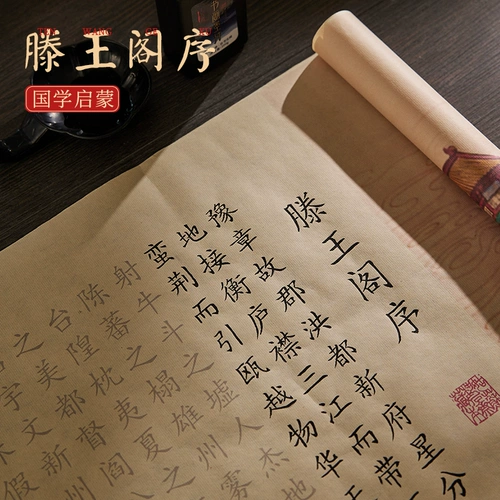 滕王阁序
国学启蒙
滕王阁序
豫章故郡洪都新府星分
地接衡庐襟三江而带
蛮荆而引瓯越物华
射牛斗之墟人杰
陈蕃之榻雄州雾
台隍枕夷夏之
之美都督阎
宇文新
假